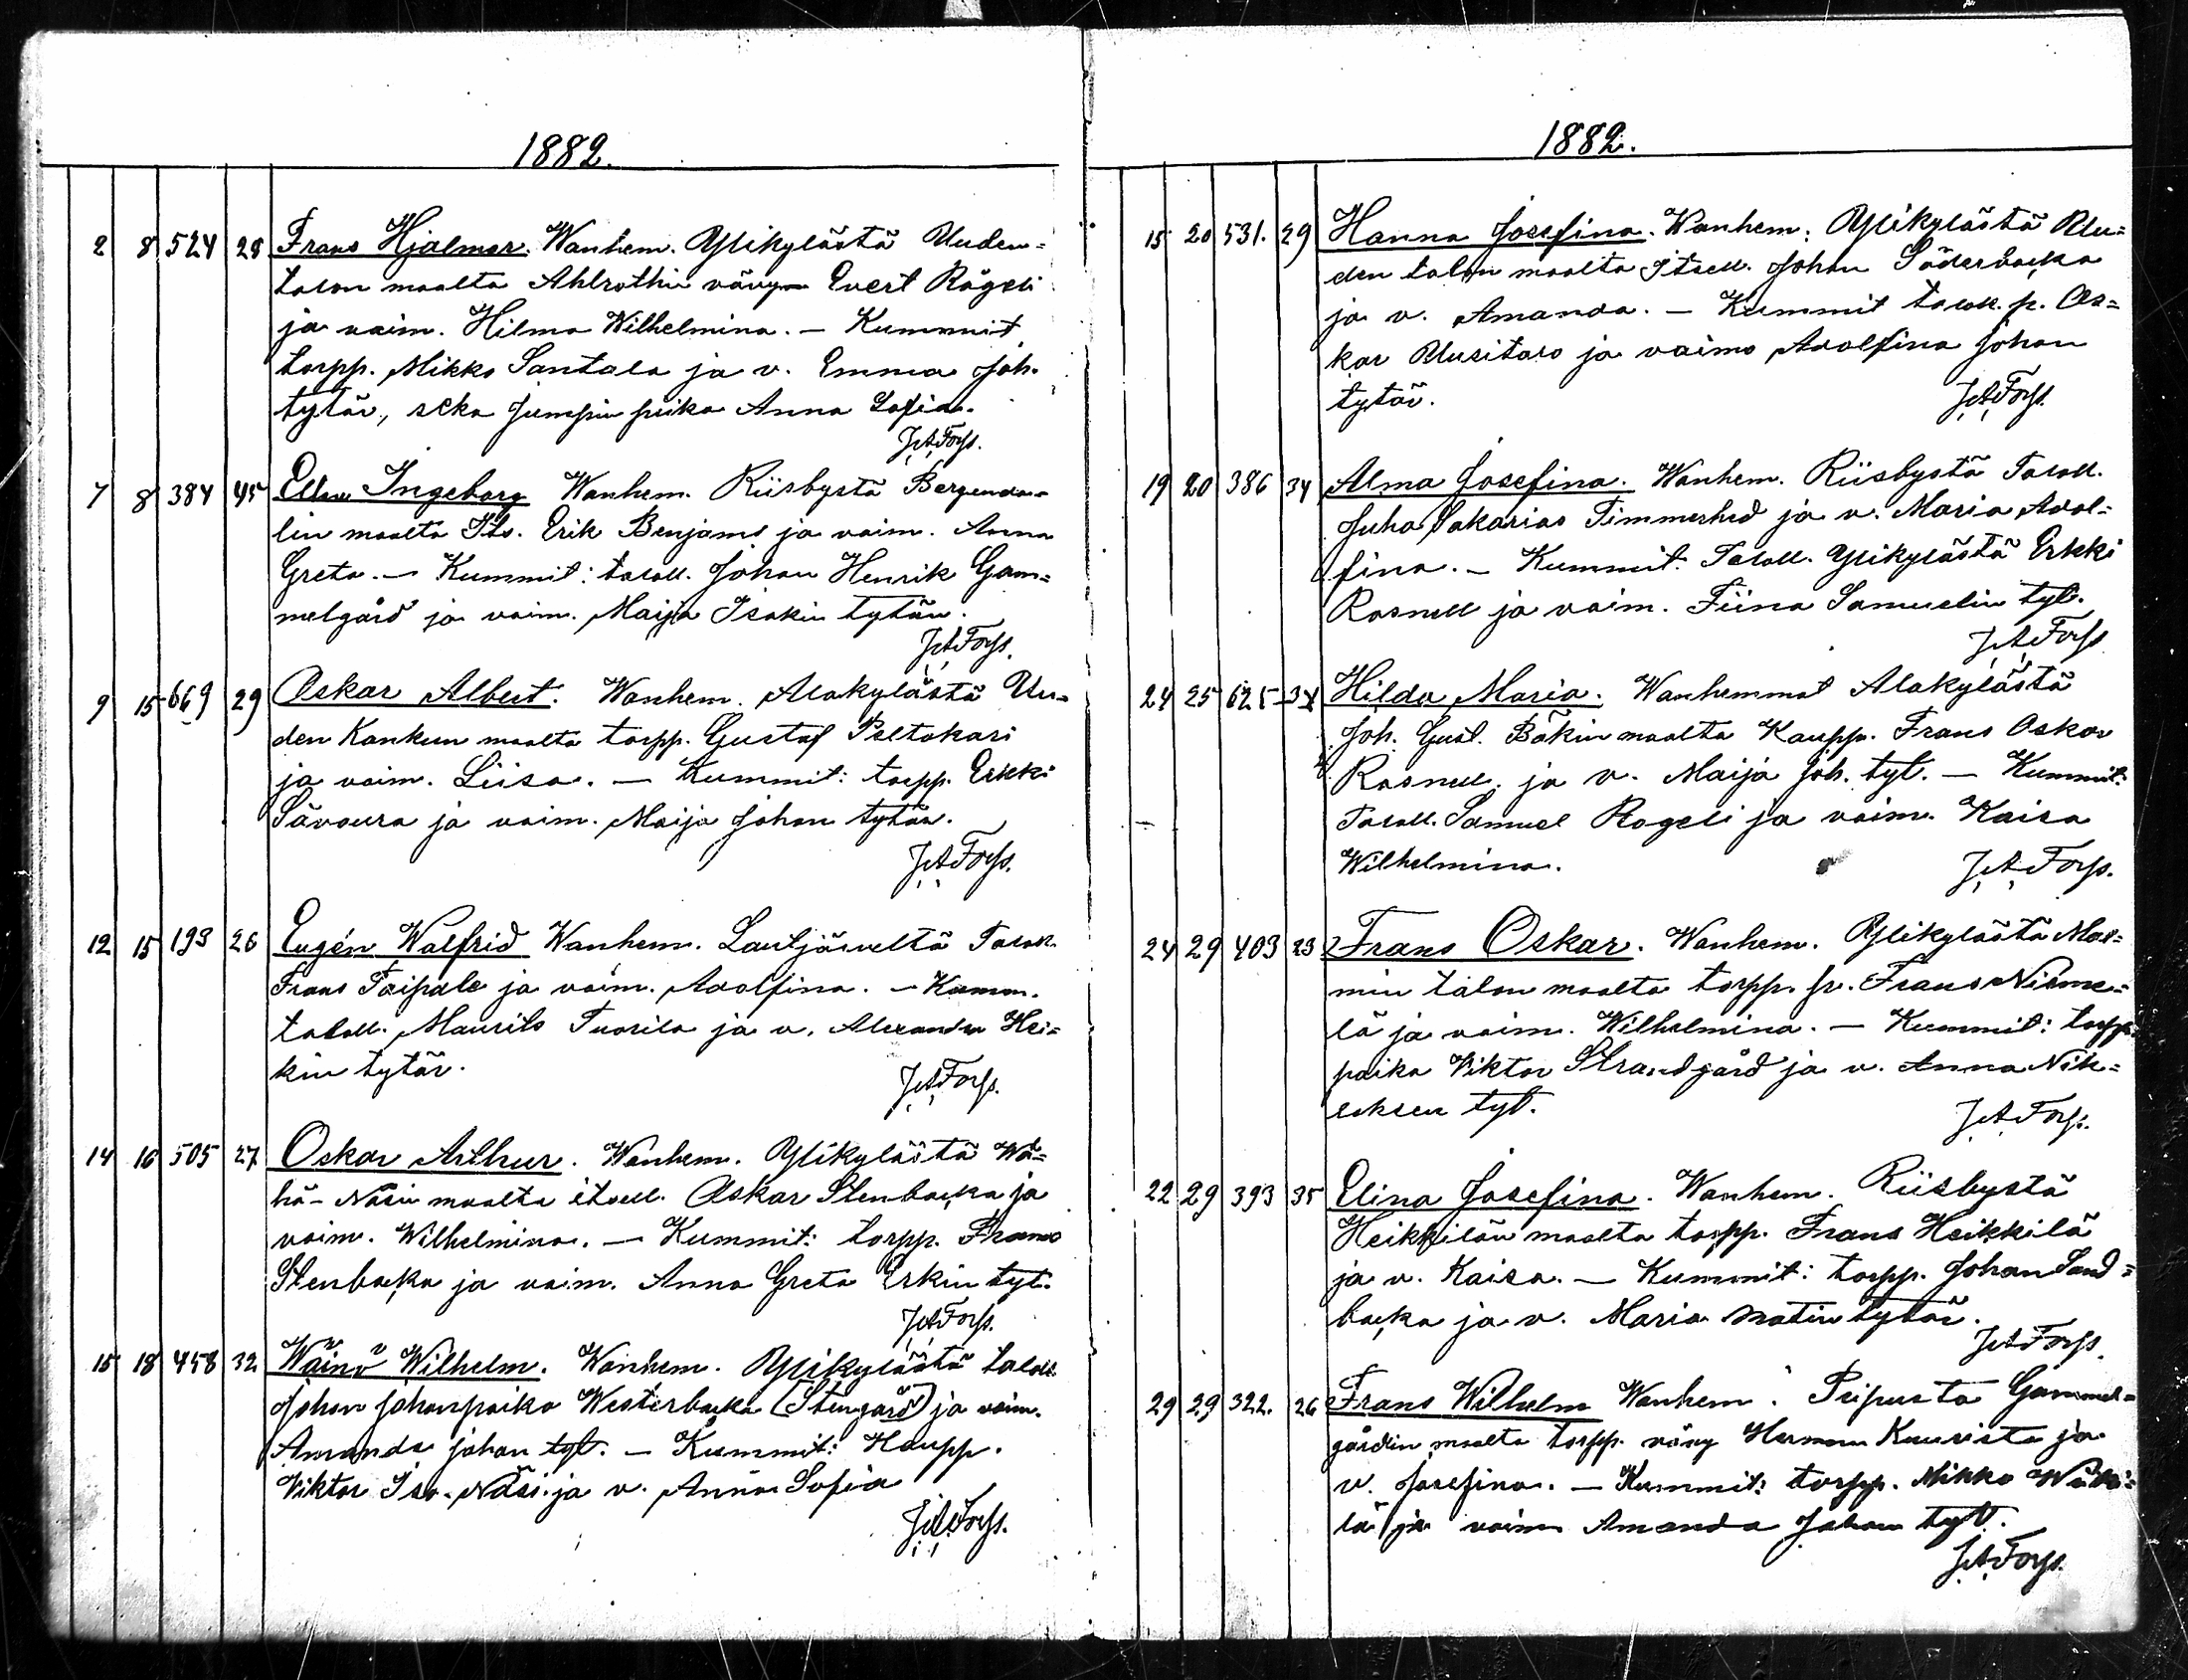 1882.
2 8 524 28 Frans Hjalmar. Wanhem. Ylikylästä Uuden-
talon maalta Ahlrothin vävy Evert Rögeli
ja vaim. Hilma Wilhelmina. — Kummit
torpp. Mikko Santala ja v. Emma Joh.
tytär, seka piika Anna Sofia.
JAForss.
7 8 384 45 Ellen Ingeborg Wanhem. Riisbystä Bergenda-
lin maalta Its. Erik Benjams ja vaim. Anna
Greta. — Kummit: taloll. Johan Henrik Gam-
melgård ja vaim. Maija Isakin tytär.
JAForss.
9 15 669 29 Oskar Albert. Wanhem. Alakylästä Uu-
den Kankun maalta torpp. Gustaf Peltokari
ja vaim. Liisa. — Kummit: torpp. Erkki
Sävoura ja vaim. Maija Johan tytär.
JAForss.
12 15 193 26 Eugén Walfrid Wanhem. Lautjärveltä Taloll.
Frans Taipale ja vaim. Adolfina. — Kumm.
taloll. Maurits Tuorila ja v. Alexandra Hei-
kin tytär.
JAForss.
14 16 505 27 Oskar Arthur. Wanhem. Ylikylästä Wä-
hä-Näsin maalta itsell. Oskar Stenbacka ja
vaim. Wilhelmina. — Kummit: torpp. Frans
Stenbacka ja vaim. Anna Greta Erkin tyt.
JAForss.
15 18 458 32 Wäinö Wilhelm. Wanhem. Ylikylästä taloll.
Johan Johanpoika Westerbacka (Stengård) ja vaim.
Amanda Johan tyt. — Kummit: Kaupp.
Viktor Iso-Näsi ja v. Anna Sofia
JAForss.
1882.
15 20 531. 29 Hanna Josefina. Wanhem: Ylikylästä Uu-
den talon maalta Itsell. Johan Söderbacka
ja v. Amanda. — Kummit talok. p. Os-
kar Uusitalo ja vaimo Adolfina Johan
tytär.
JAForss.
19 20 386 34 Alma Josefina. Wanhem. Riisbystä Taloll.
Juha Sakarias Timmerhed ja v. Maria Adol-
fina. — Kummit: Taloll. Ylikylästä Erkki
Rosnell ja vaim. Fiina Samuelin tyt.
JAForss
24 25 625 34 Hilda Maria. Wanhemmat Alakylästä
Joh. Gust. Bökin maalta Kaupp. Frans Oskar
Rosnell ja v. Maija Joh. tyt. — Kummit:
Taloll. Samuel Rögeli ja vaim. Kaisa
Wilhelmina.
JAForss.
24 29 403 23 Frans Oskar. Wanhem. Ylikylästä Mar-
min talon maalta torpp. pr. Frans Nieme-
lä ja vaim. Wilhelmina. — Kummit: torpp.
poika Viktor Strandgård ja v. Anna Nik-
leksen tyt.
JAForss.
22 29 393 35 Elina Josefina. Wanhem. Riisbystä
Heikkilän maalta torpp. Frans Heikkilä
ja v. Kaisa. — Kummit: torpp. Johan Sand-
backa ja v. Maria Matin tytär.
JAForss.
29 29 322. 26 Frans Wilhelm Wanhem. Peipusta Gammel-
gårdin maalta torpp. vävy Herman Kuurista ja
v. Josefina. — Kummit: torpp. Mikko
lä ja vaim Amanda Johan tyt.
JAForss.